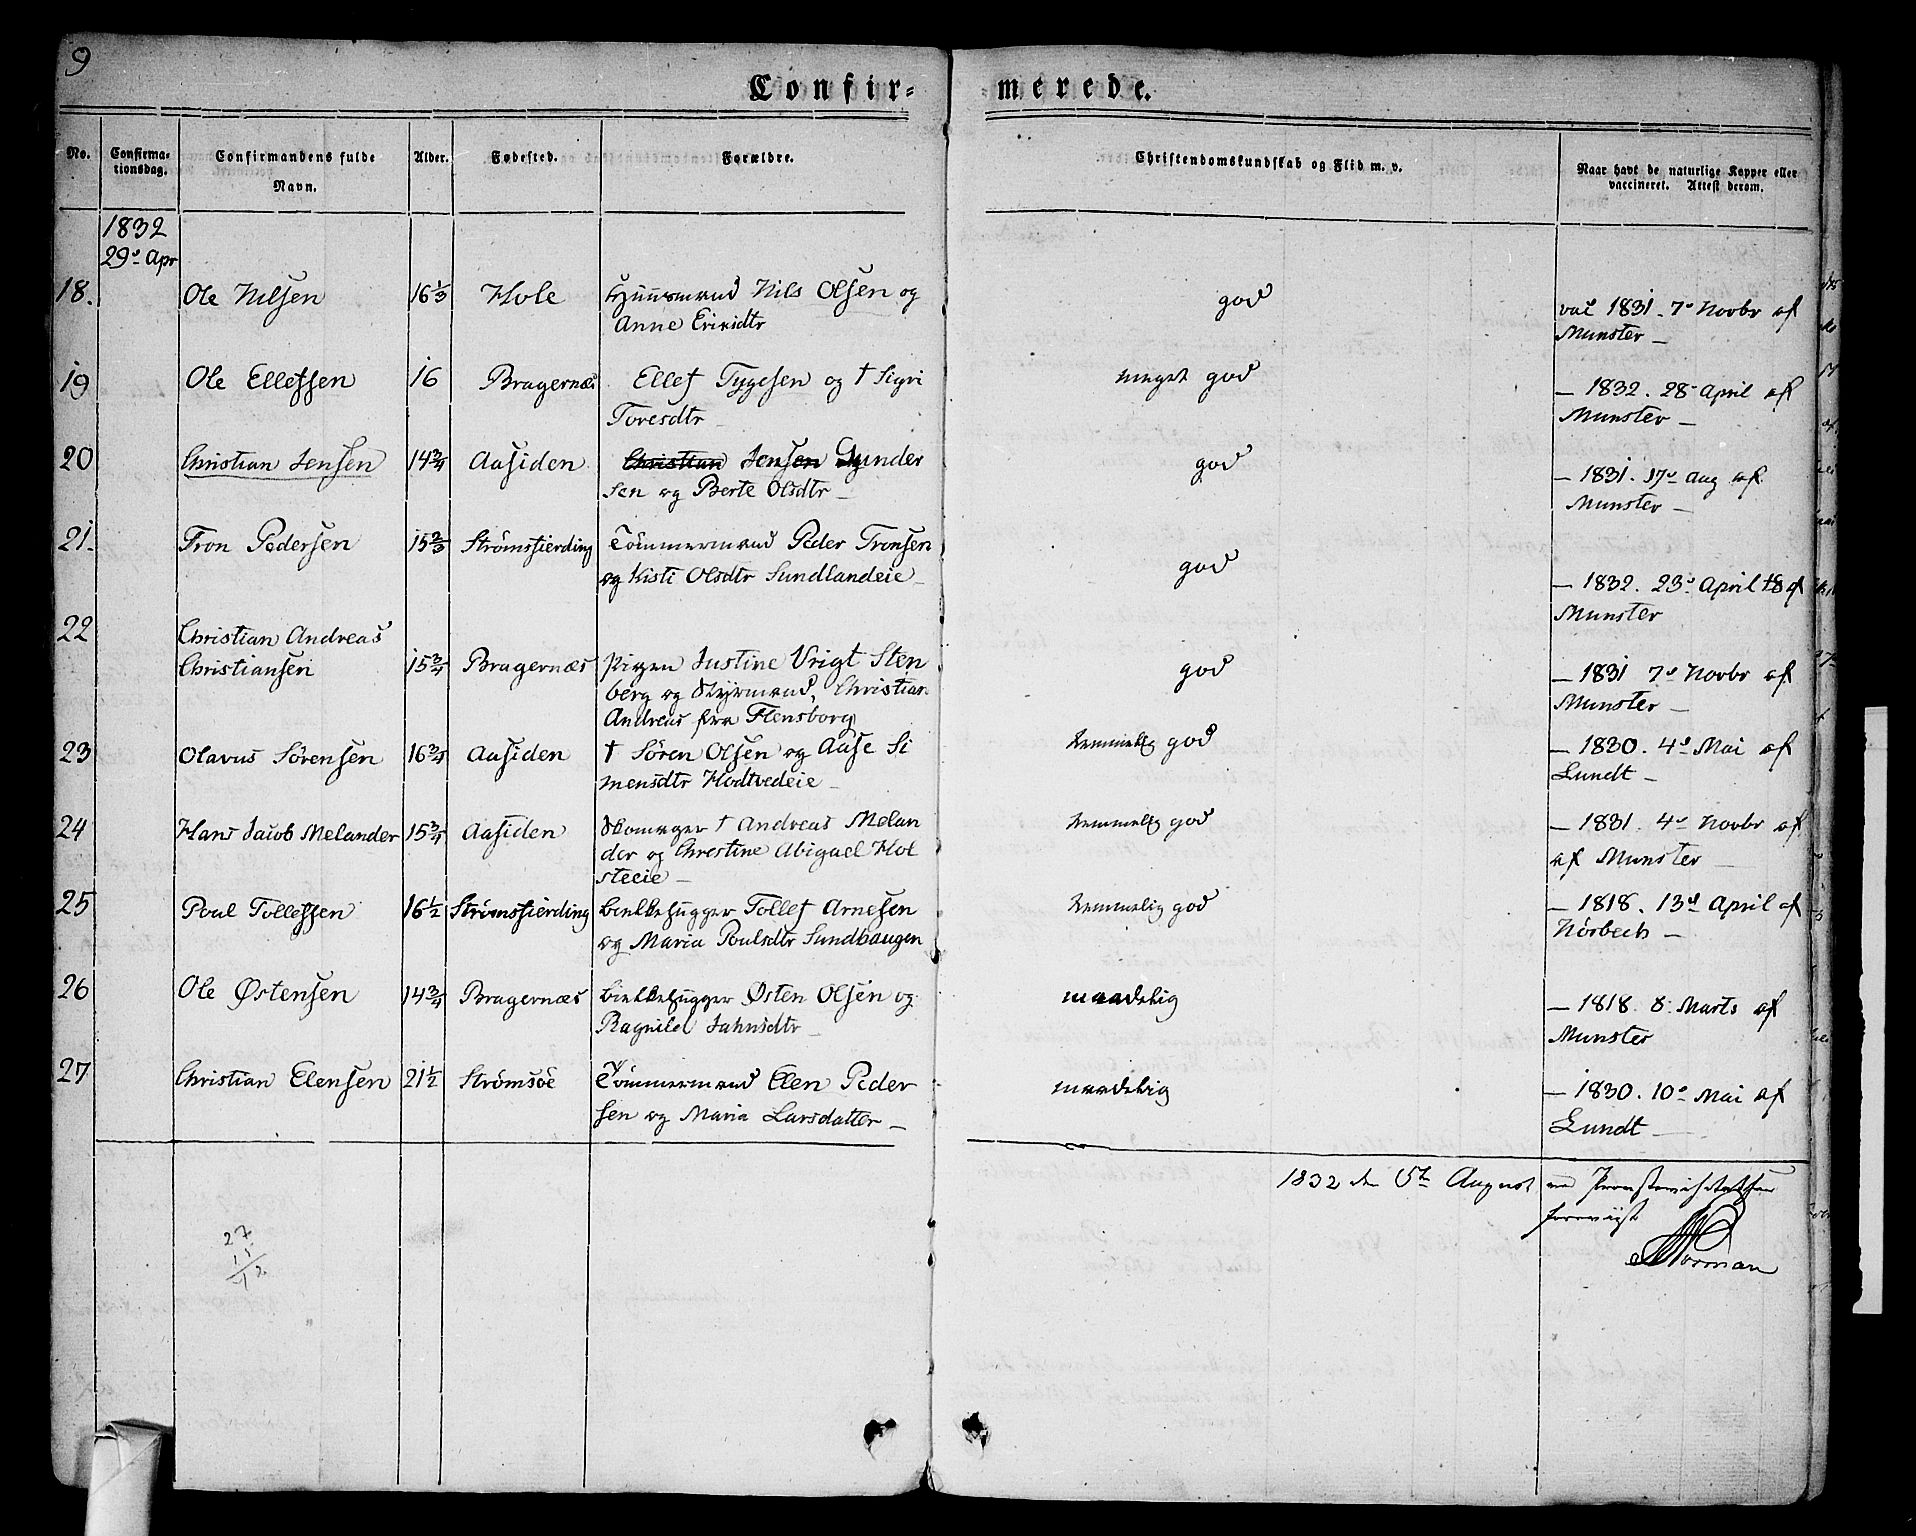 9
Confir- merede.
No. Confirma-tionsdag. Confirmandens fulde Navn. Alder. Fødested. Forældre. Christendomskundskab og Flid m. v. Naar havt de naturlige Kopper eller vaccineret. Attest derom.
1832
29de Apr
18. Ole Nilsen 16 1/3 Hole Huusmand Nils Olsen og god vac 1831. 7de Novbr af
Anne Ericidtr Munster –
19 Ole Ellefsen 16 Bragernæs Ellef Tygesen og † Sigri meget god – 1832. 28 April af
Toresdtr Munster –
20 Christian Jensen 14 3/4 Aasiden Christian Jensen Gunder god – 1831. 17de Aug af
sen og Berte Olsdtr – Munster –
21. Tron Pedersen 15 2/3 Strømsfierding Tømmermand Peder Tronsen god
og Kisti Olsdtr Sundlandeie – – 1832. 23de April af
Munster
22 Christian Andreas
Christiansen 15 3/4 Bragernæs pigen Justine Vrigt Sten god – 1831 7de Novbr af
berg og Styrmand, Christian Munster –
Andreas fra Flensborg
23 Olavus Sørensen 16 3/4 Aasiden † Søren Olsen og Aase Si temmelig god – 1830. 4de Mai af
mensdtr Hodtvedeie – Lundt –
24 Hans Jacob Melander 15 3/4 Aasiden Skomager † Andreas Melan temmelig god – 1831. 4de Novbr af
der og Chrestine Abigael Hol af Munster –
steeie –
25 Poul Tollefsen 16 1/2 Strømsfierding bielkehugger Tollef Arnesen temmelig god – 1818. 13de April af
og Maria Poulsdtr Sundhaugen Nørbech –
26 Ole Østensen 14 3/4 Bragernæs bielkehugger Østen Olsen og maadelig – 1818. 8. Marts af
Ragnild Jahnsdtr – Munster
27 Christian Elensen 21 1/2 Strømsøe Tømmermand Elen Peder maadelig – 1830. 10de Mai af
sen og Maria Larsdatter – Lundt –
1832 den 5te August
foreviist
Norman
27